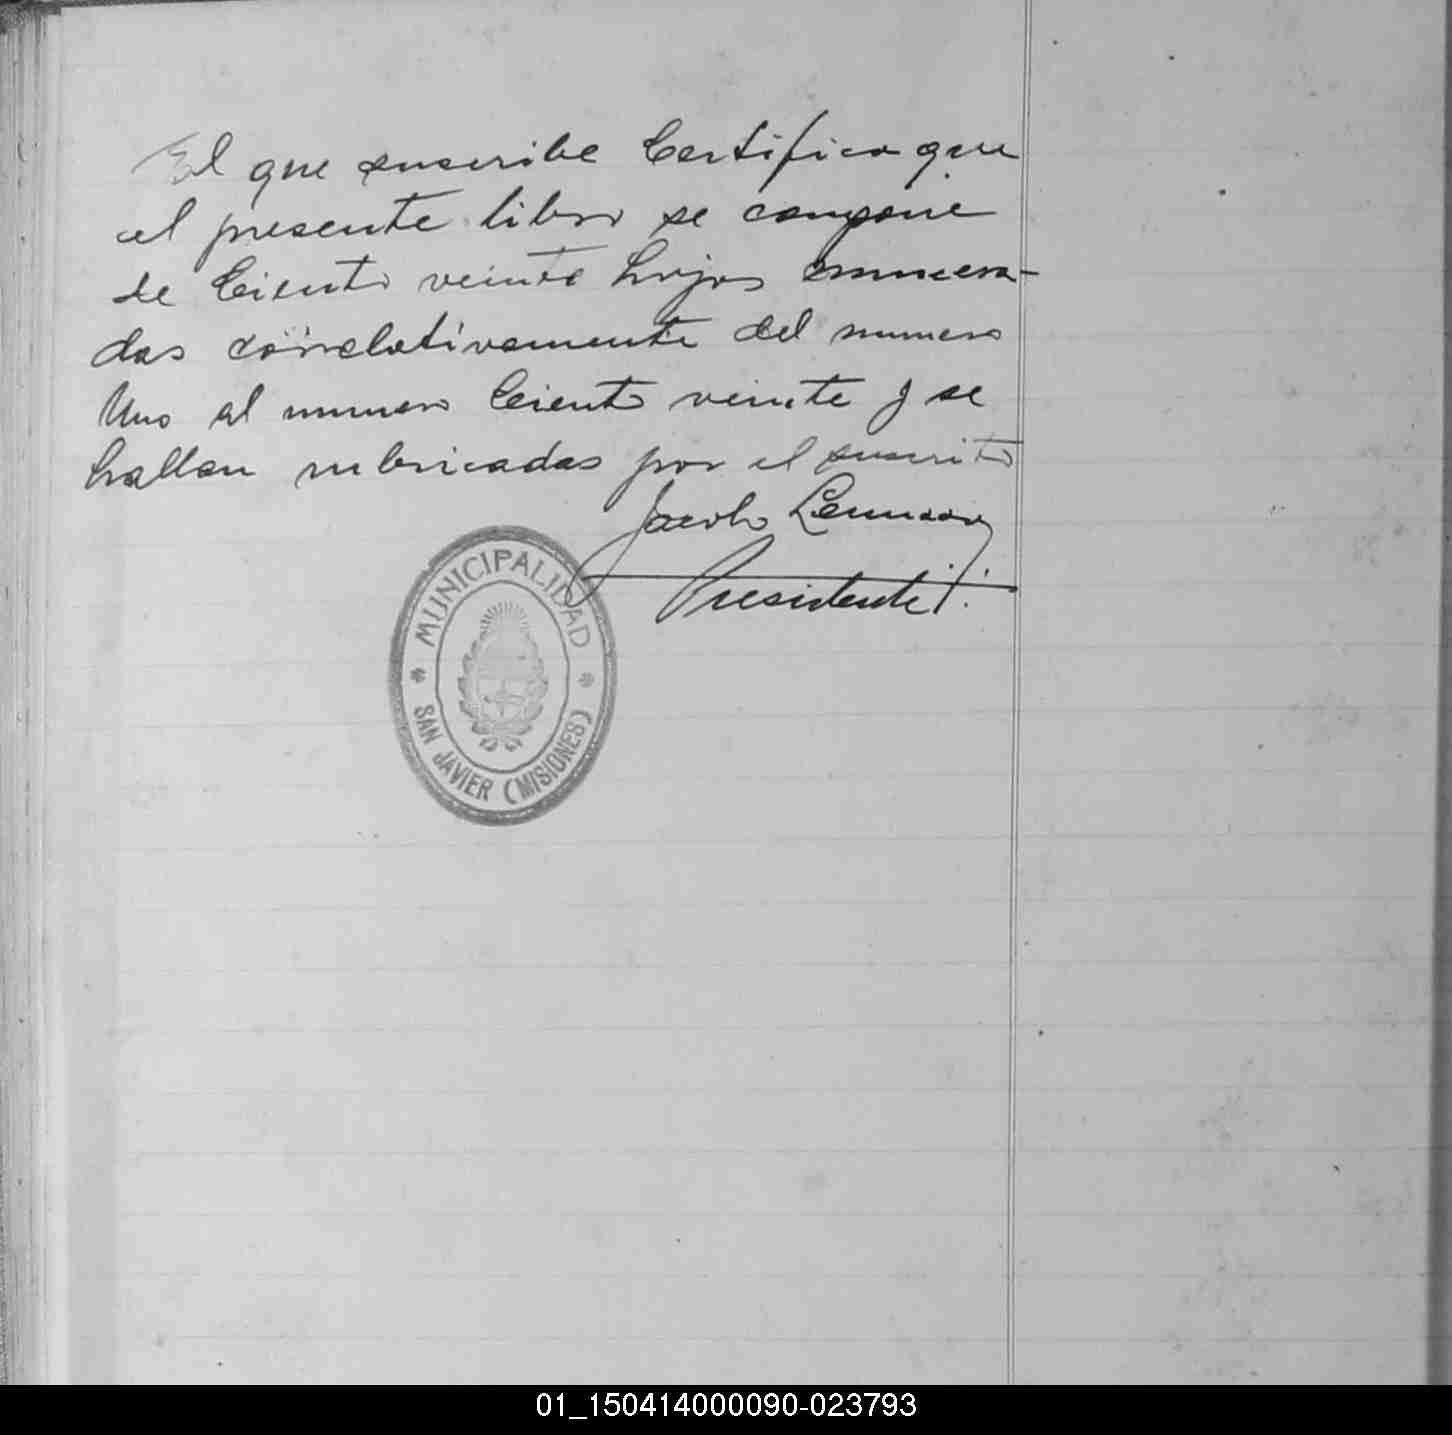 El que suscribe Certifica que
el presente libro se compone
de Ciento veinte hojas enumera-
das correlativamente del numero
Uno al numero Ciento veinte y se
hallan rubricadas por el suscrito
Jacob
Presidente
MUNICIPALIDAD
SAN JAVIER (MISIONES)
01_150414000090-023793